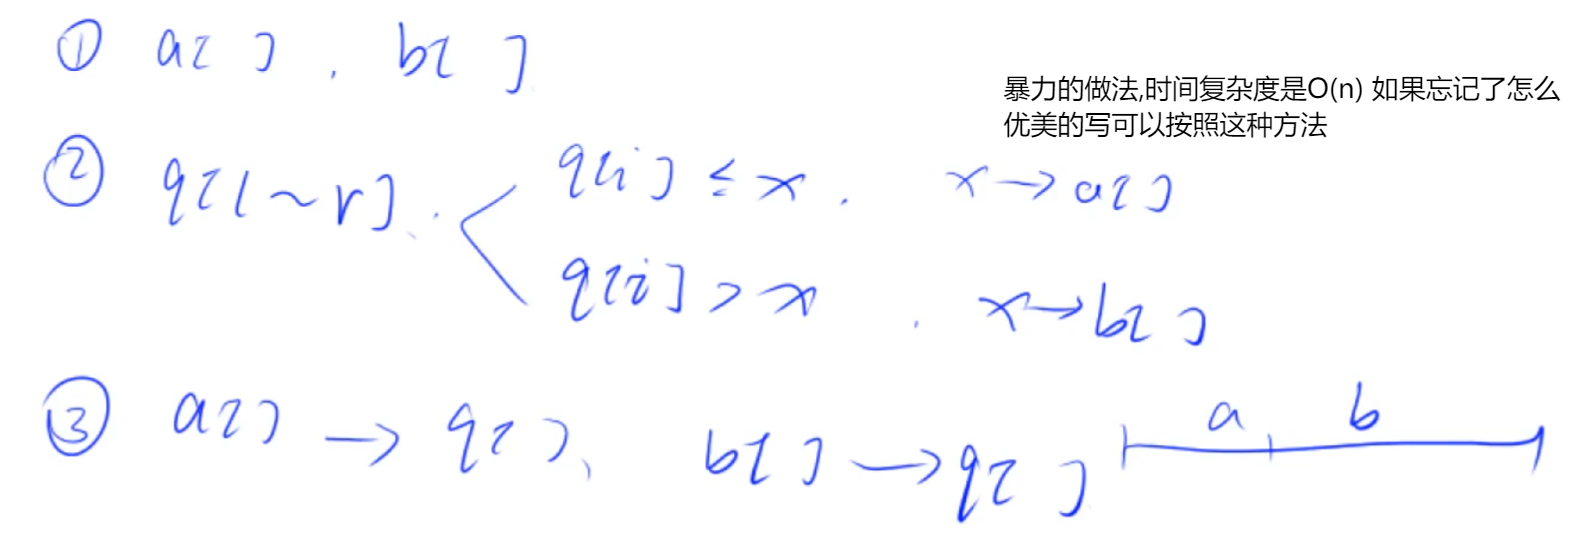 ① a[ ] , b[ ]
暴力的做法,时间复杂度是O(n) 如果忘记了怎么
优美的写可以按照这种方法
② q[l~r] .
q[i] ≤ x . x → a[ ]
q[i] > x . x → b[ ]
③ a[ ] → q[ ]、 b[ ] → q[ ]
a b